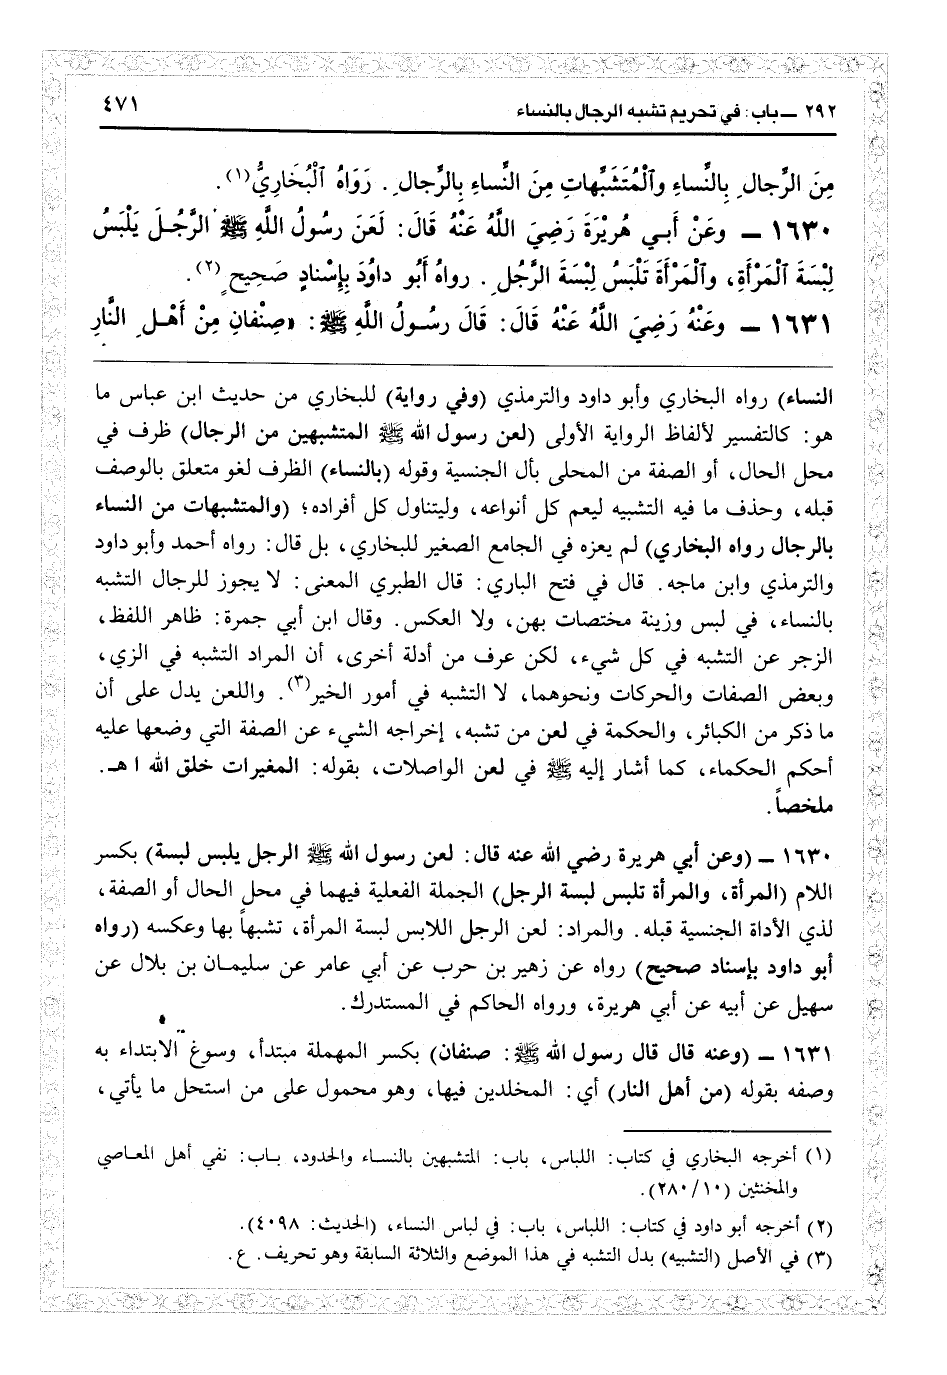 ٢٩٢ ـ باب: في تحريم تشبه الرجال بالنساء
٤٧١
مِنَ الرِّجالِ بِالنِّساءِ والْمُتَشَبِّهاتِ مِنَ النِّساءِ بِالرِّجالِ. رَوَاهُ الْبُخَارِيُّ(١).
١٦٣٠ ـ وعَنْ أَبي هُرَيْرَةَ رَضِيَ اللَّهُ عَنْهُ قَالَ: لَعَنَ رسُولُ اللَّهِ ﷺ الرَّجُلَ يَلْبَسُ
لِبْسَةَ الْمَرْأَةِ، والْمَرْأَةَ تَلْبَسُ لِبْسَةَ الرَّجُلِ. رواهُ أَبُو داوُدَ بِإِسْنادٍ صَحِيحٍ(٢).
١٦٣١ ـ وعَنْهُ رَضِيَ اللَّهُ عَنْهُ قَالَ: قَالَ رسُولُ اللَّهِ ﷺ: «صِنْفانِ مِنْ أَهْلِ النَّارِ
النساء) رواه البخاري وأبو داود والترمذي (وفي رواية) للبخاري من حديث ابن عباس ما
هو: كالتفسير لألفاظ الرواية الأولى (لعن رسول الله ﷺ المتشبهين من الرجال) ظرف في
محل الحال، أو الصفة من المحلى بأل الجنسية وقوله (بالنساء) الظرف لغو متعلق بالوصف
قبله، وحذف ما فيه التشبيه ليعم كل أنواعه، وليتناول كل أفراده؛ (والمتشبهات من النساء
بالرجال رواه البخاري) لم يعزه في الجامع الصغير للبخاري، بل قال: رواه أحمد وأبو داود
والترمذي وابن ماجه. قال في فتح الباري: قال الطبري المعنى: لا يجوز للرجال التشبه
بالنساء، في لبس وزينة مختصات بهن، ولا العكس. وقال ابن أبي جمرة: ظاهر اللفظ،
الزجر عن التشبه في كل شيء، لكن عرف من أدلة أخرى، أن المراد التشبه في الزي،
وبعض الصفات والحركات ونحوهما، لا التشبه في أمور الخير(٣). واللعن يدل على أن
ما ذكر من الكبائر، والحكمة في لعن من تشبه، إخراجه الشيء عن الصفة التي وضعها عليه
أحكم الحكماء، كما أشار إليه ﷺ في لعن الواصلات، بقوله: المغيرات خلق الله ا هـ.
ملخصاً.
١٦٣٠ ـ (وعن أبي هريرة رضي الله عنه قال: لعن رسول الله ﷺ الرجل يلبس لبسة) بكسر
اللام (المرأة، والمرأة تلبس لبسة الرجل) الجملة الفعلية فيهما في محل الحال أو الصفة،
لذي الأداة الجنسية قبله. والمراد: لعن الرجل اللابس لبسة المرأة، تشبهاً بها وعكسه (رواه
أبو داود بإسناد صحيح) رواه عن زهير بن حرب عن أبي عامر عن سليمان بن بلال عن
سهيل عن أبيه عن أبي هريرة، ورواه الحاكم في المستدرك.
١٦٣١ ـ (وعنه قال قال رسول الله ﷺ: صنفان) بكسر المهملة مبتدأ، وسوغ الابتداء به
وصفه بقوله (من أهل النار) أي: المخلدين فيها، وهو محمول على من استحل ما يأتي،
(١) أخرجه البخاري في كتاب: اللباس، باب: المتشبهين بالنساء والحدود، باب: نفي أهل المعاصي
والمخنثين (١٠/ ٢٨٠).
(٢) أخرجه أبو داود في كتاب: اللباس، باب: في لباس النساء، (الحديث: ٤٠٩٨).
(٣) في الأصل (التشبيه) بدل التشبه في هذا الموضع والثلاثة السابقة وهو تحريف. ع.